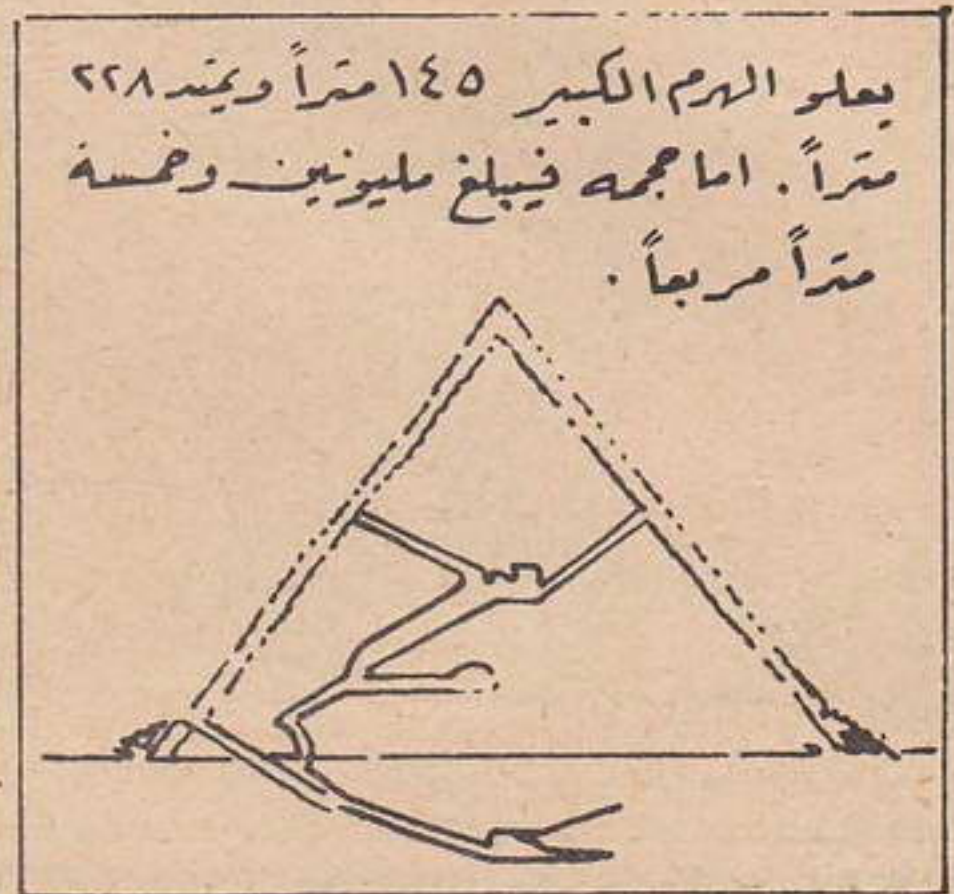 يعلو الهرم الكبير ١٤٥ متراً ويمتد ٢٢٨
متراً. اما حجمه فيبلغ مليونين وخمسة
متراً مربعاً.